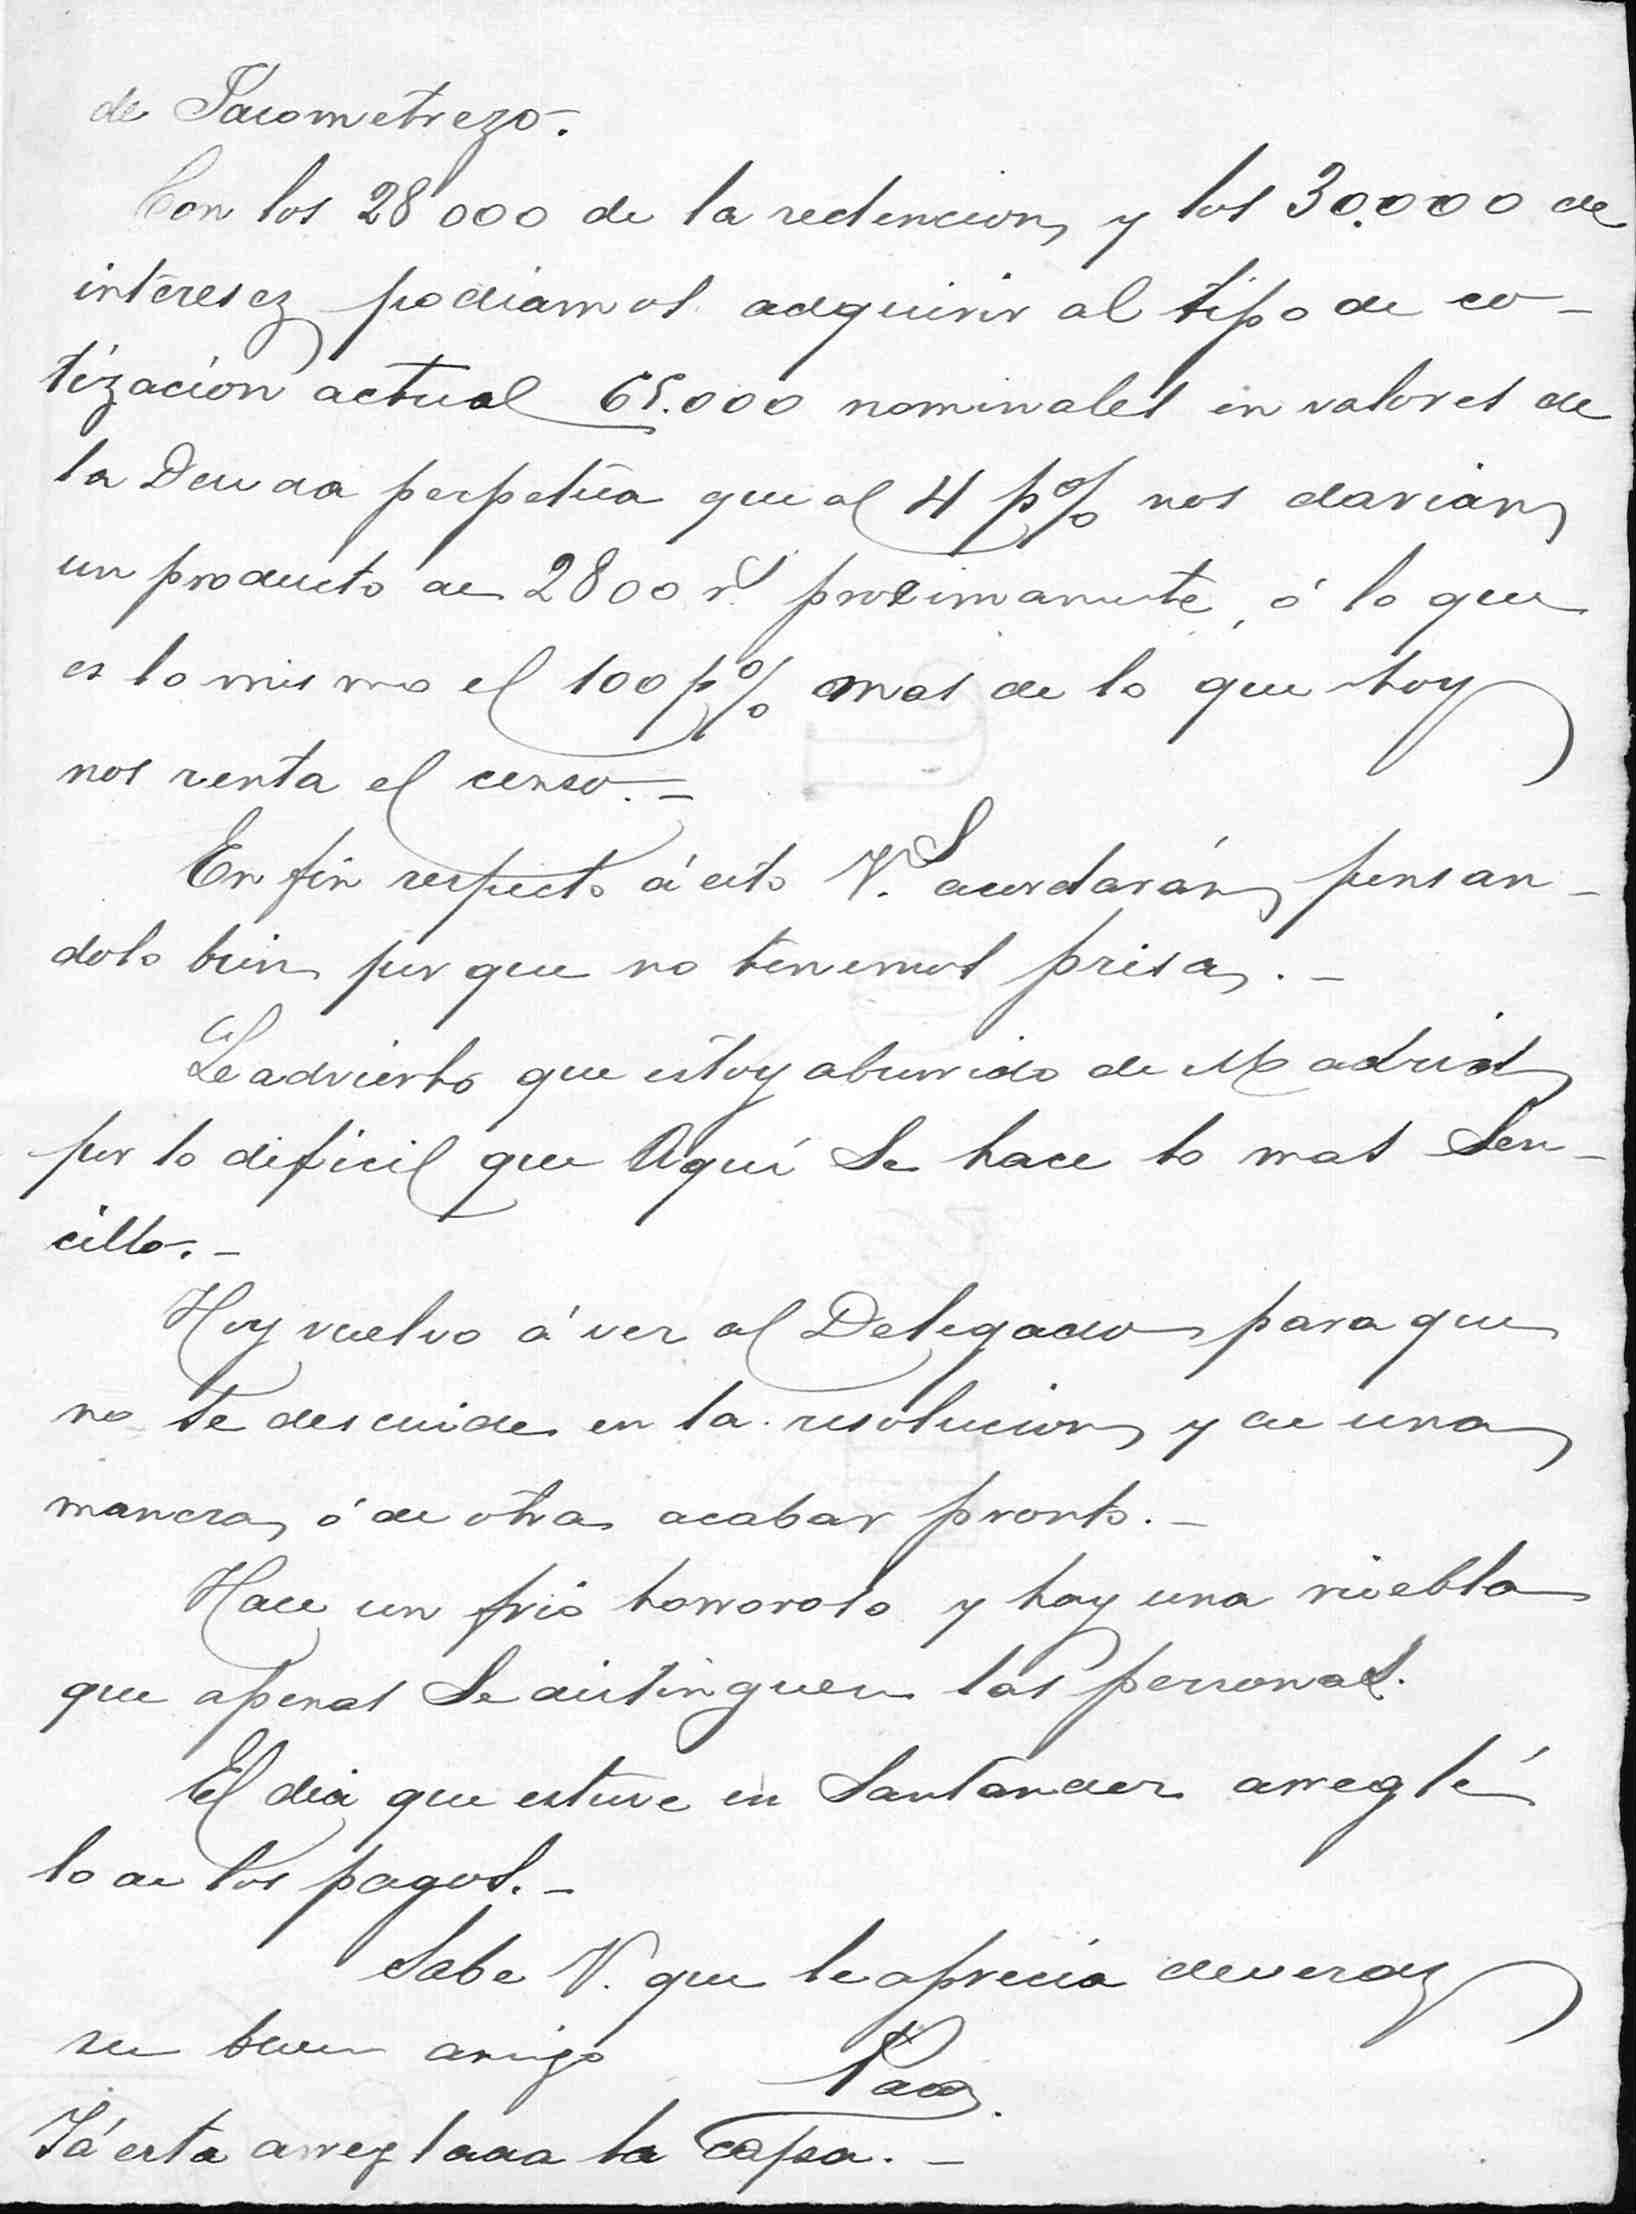 de Jacometrezo.
Con los 28000 de la redencion y los 30.000 de
intereses podiamos adquirir al tipo de co-
tizacion actual 65.000 nominales en valores de
la Deuda perpetua que al 4 p% nos darian
un producto de 2800 rs proximamente, ó lo que
es lo mismo el 100 p% mas de lo que hoy
nos renta el censo.-
En fin respecto á esto V.S acordarán pensan-
dolo bien por que no tenemos prisa.-
Le advierto que estoy aburrido de Madrid
por lo dificil que Aqui se hace lo mas sen-
cillo.-
Hoy vuelvo á ver al Delegado para que
no se descuide en la resolucion y de una
manera ó de otra acabar pronto.-
Hace un frio horroroso y hay una niebla
que apenas se distinguen las personas.
El dia que estuve en Santander arreglé
lo de los pagos.-
Sabe V. que le aprecia deveras
su buen amigo Paco.
Yá esta arreglada la capa.-